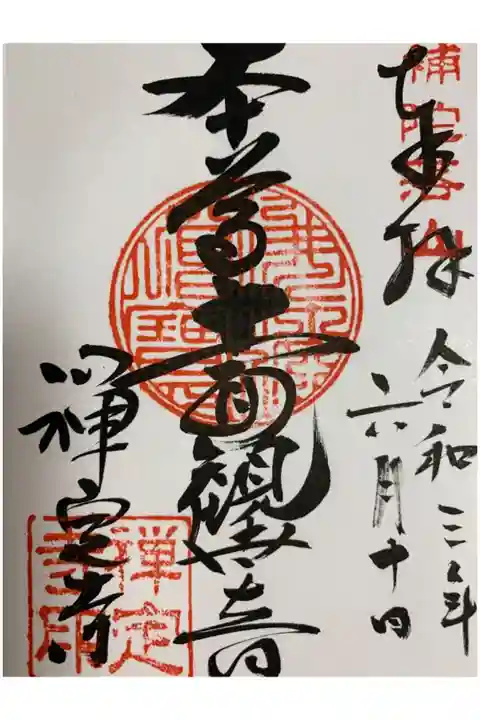 補陀落山
奉拝
令和三年
六月十日
本尊十一面觀世音
禅定寺
禅定寺印